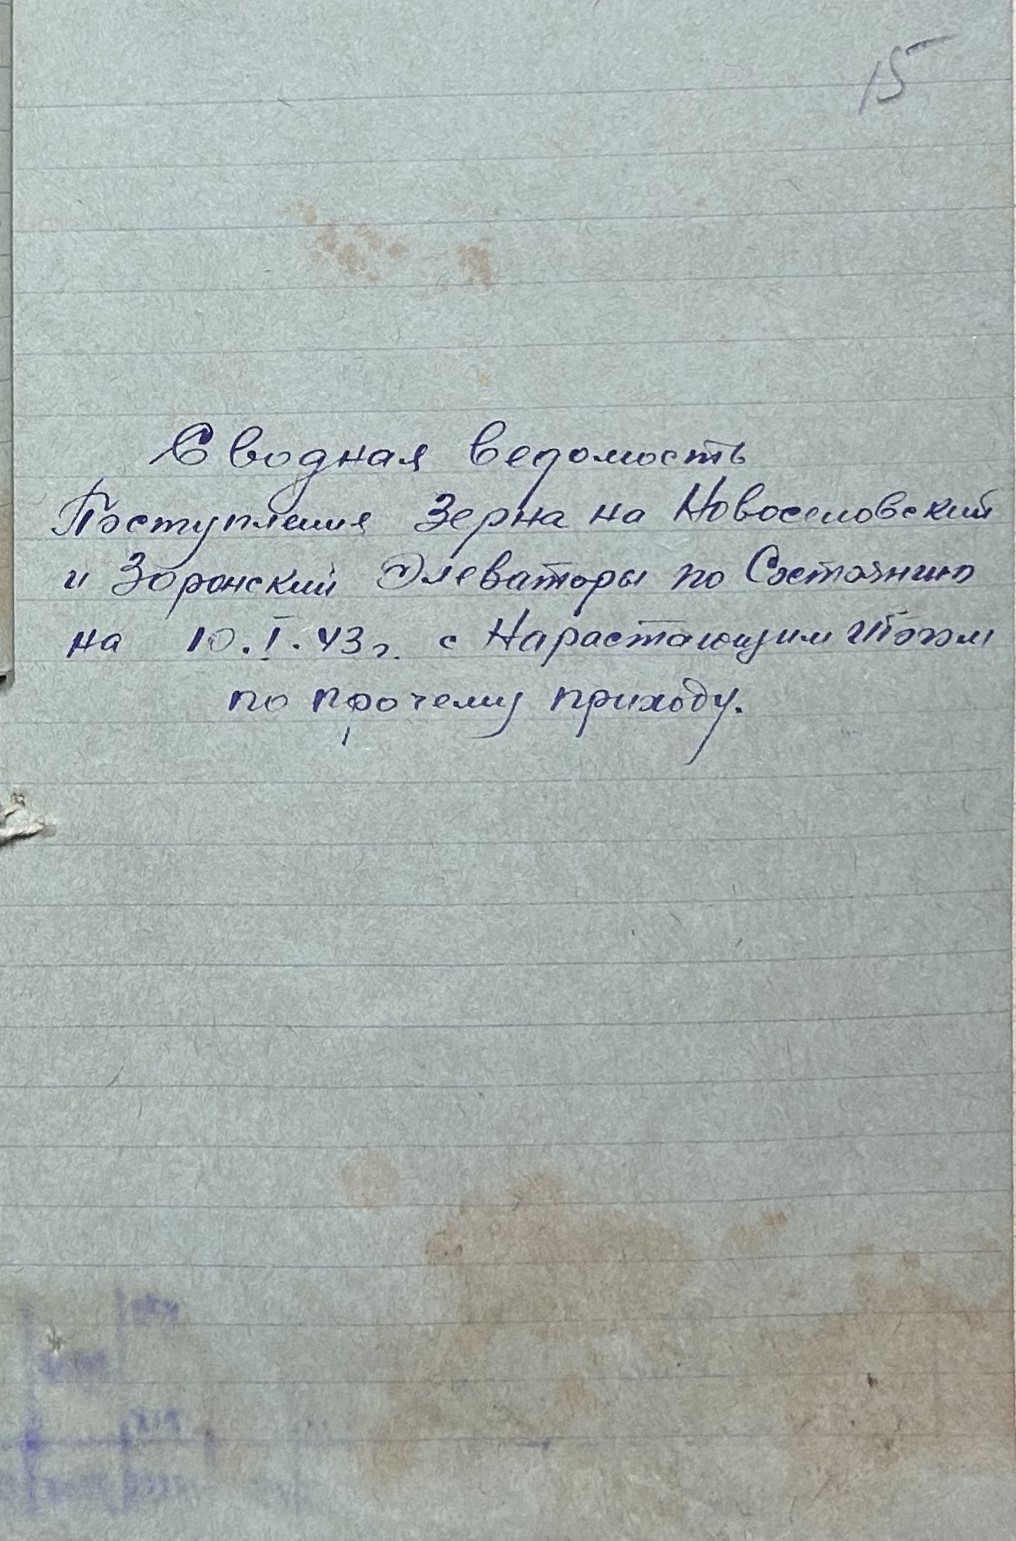 15
Сводная ведомость
Поступления Зерна на Новоселовский
и Заронский Элеваторы по Состоянию
на 10.I.43г. с Нарастающим итогом
по прочему приходу.